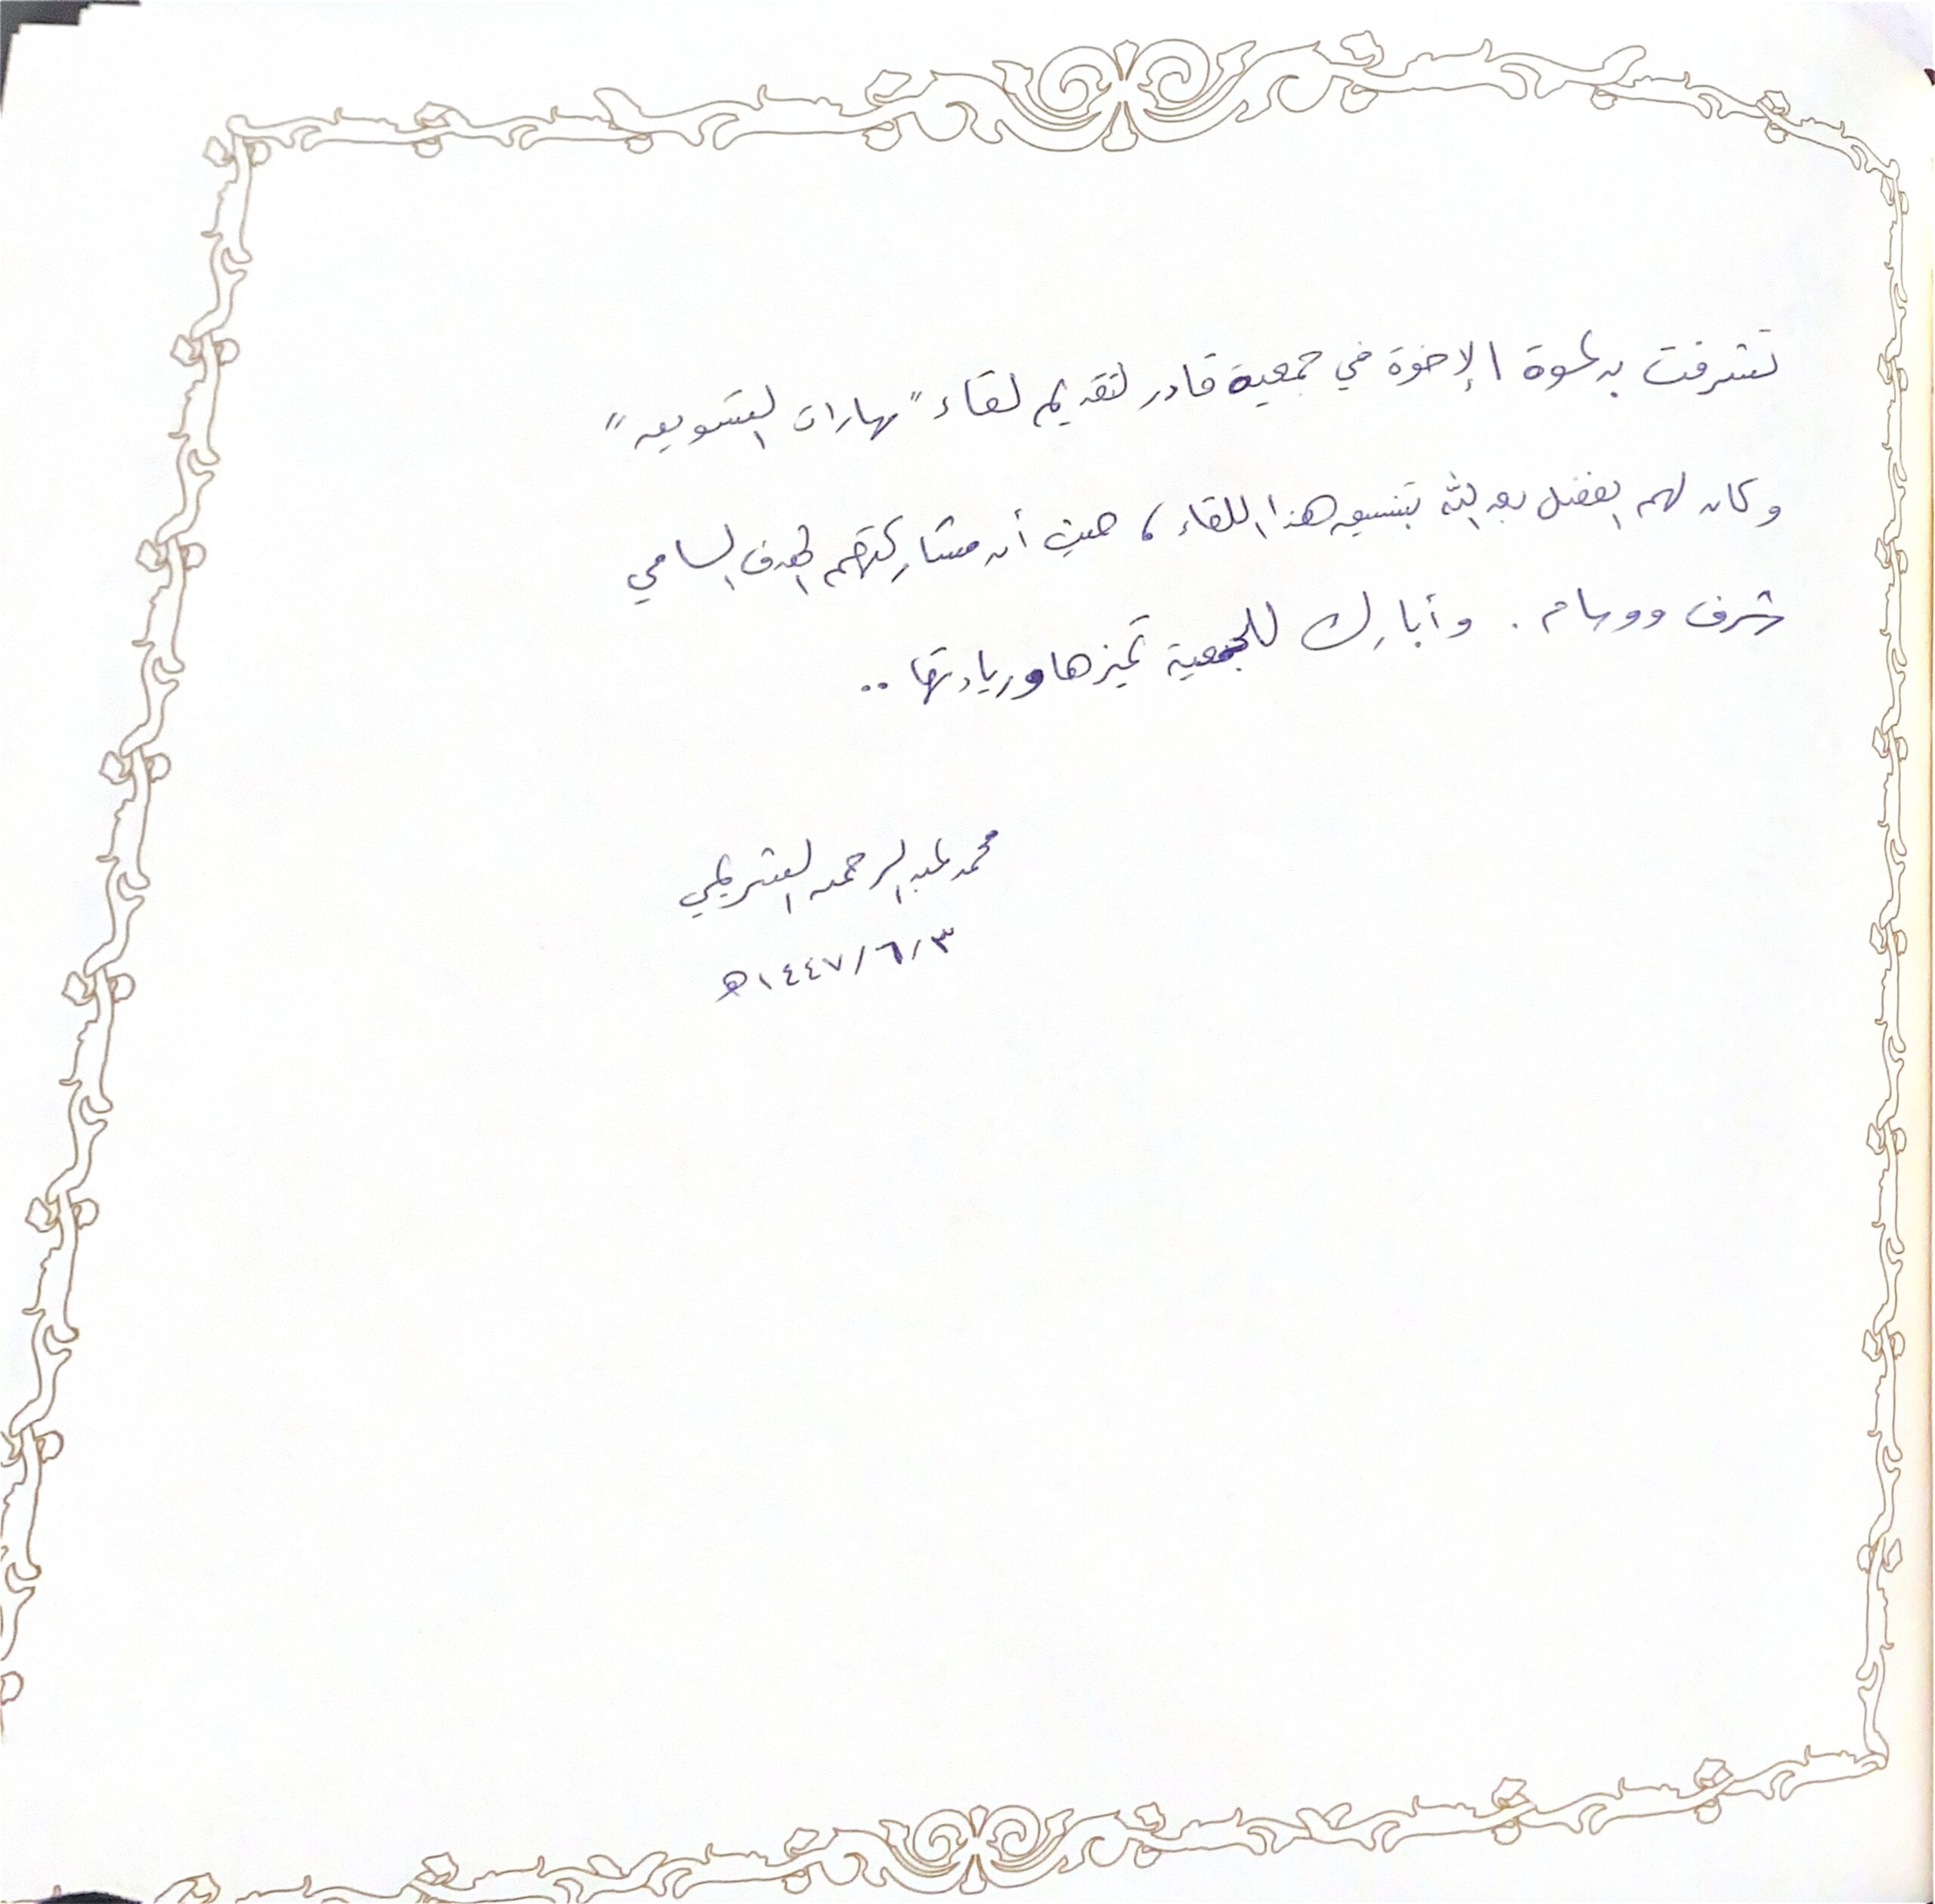 تشرفت بدعوة الإخوة في جمعية قادر لتقديم لقاء "مهارات التسويق"
وكان لهم الفضل بعد الله بتنسيق هذا اللقاء، حيث أن مشاركتهم الهدف السامي
شرف ووسام. وأبارك للجمعية تميزها وريادتها..
محمد عبدالرحمن
١٤٤٧/٦/٣هـ